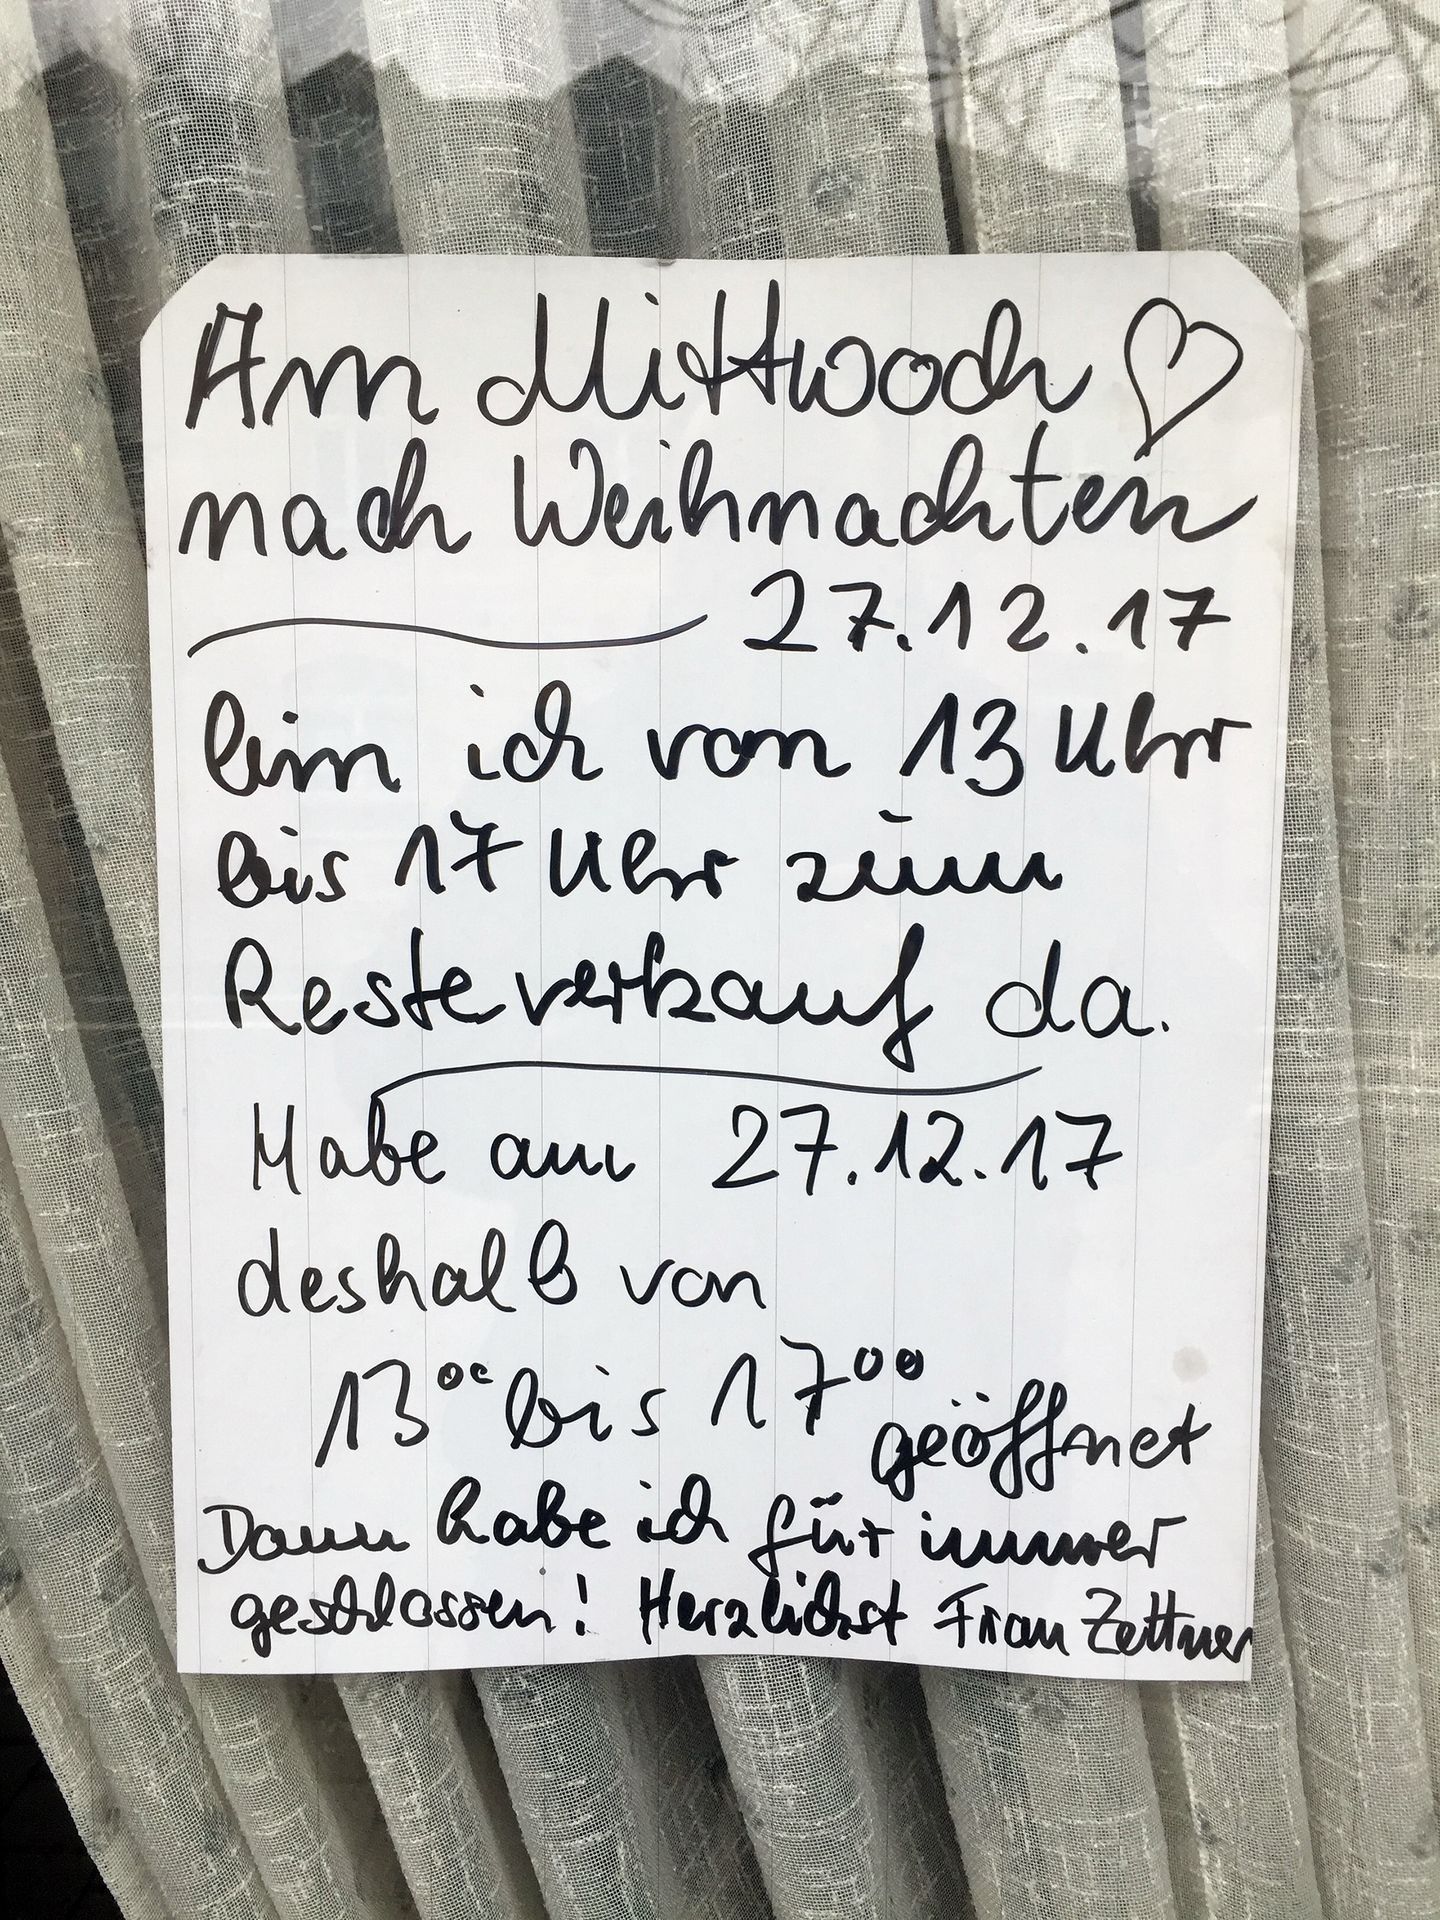 Am Mittwoch ♡
nach Weihnachten
27.12.17
bin ich von 13 Uhr
bis 17 Uhr zum
Resteverkauf da.
Habe am 27.12.17
deshalb von
13⁰⁰ bis 17⁰⁰
geöffnet
Dann habe ich für immer
geschlossen! Herzlichst Frau Zettner